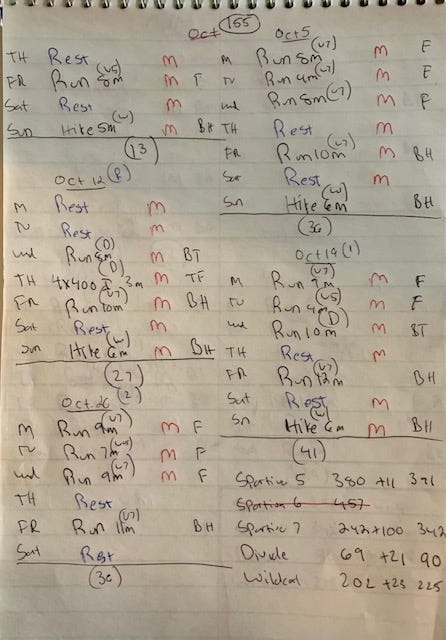 Oct 155
TH Rest M
FR Run 8m (U5) M F
Sat Rest M
Sun Hike 5m (W) M BH
(13)
Oct 12 (R)
M Rest M
TU Rest M
Wed Run 8m (D) M BT
TH 4x400 I 3m (D) M TF
FR Run 10m (U7) M BH
Sat Rest M
Sun Hike 6m (W) M BH
(27)
Oct. 26 (2)
M Run 9m (U7) M F
TU Run 7m (U5) M F
Wed Run 9m (U7) M F
TH Rest
FR Run 11m (U7) BH
Sat Rest
(36)
Oct 5
M Run 8m (U7) M F
TU Run 4m (U7) M F
Wed Run 8m (U7) M F
TH Rest M
FR Run 10m (U7) M BH
Sat Rest M
Sun Hike 6m (W) BH
(36)
Oct 19 (1)
M Run 9m (U7) M F
TU Run 4m (U5) M F
Wed Run 10m (D) M BT
TH Rest M
FR Run 12m (U7) BH
Sat Rest M
Sn Hike 6m (W) M BH
(41)
Sportive 5 380 +11 391
Sportive 6 457
Sportive 7 242 +100 342
Divide 69 +21 90
Wildcat 202 +23 225